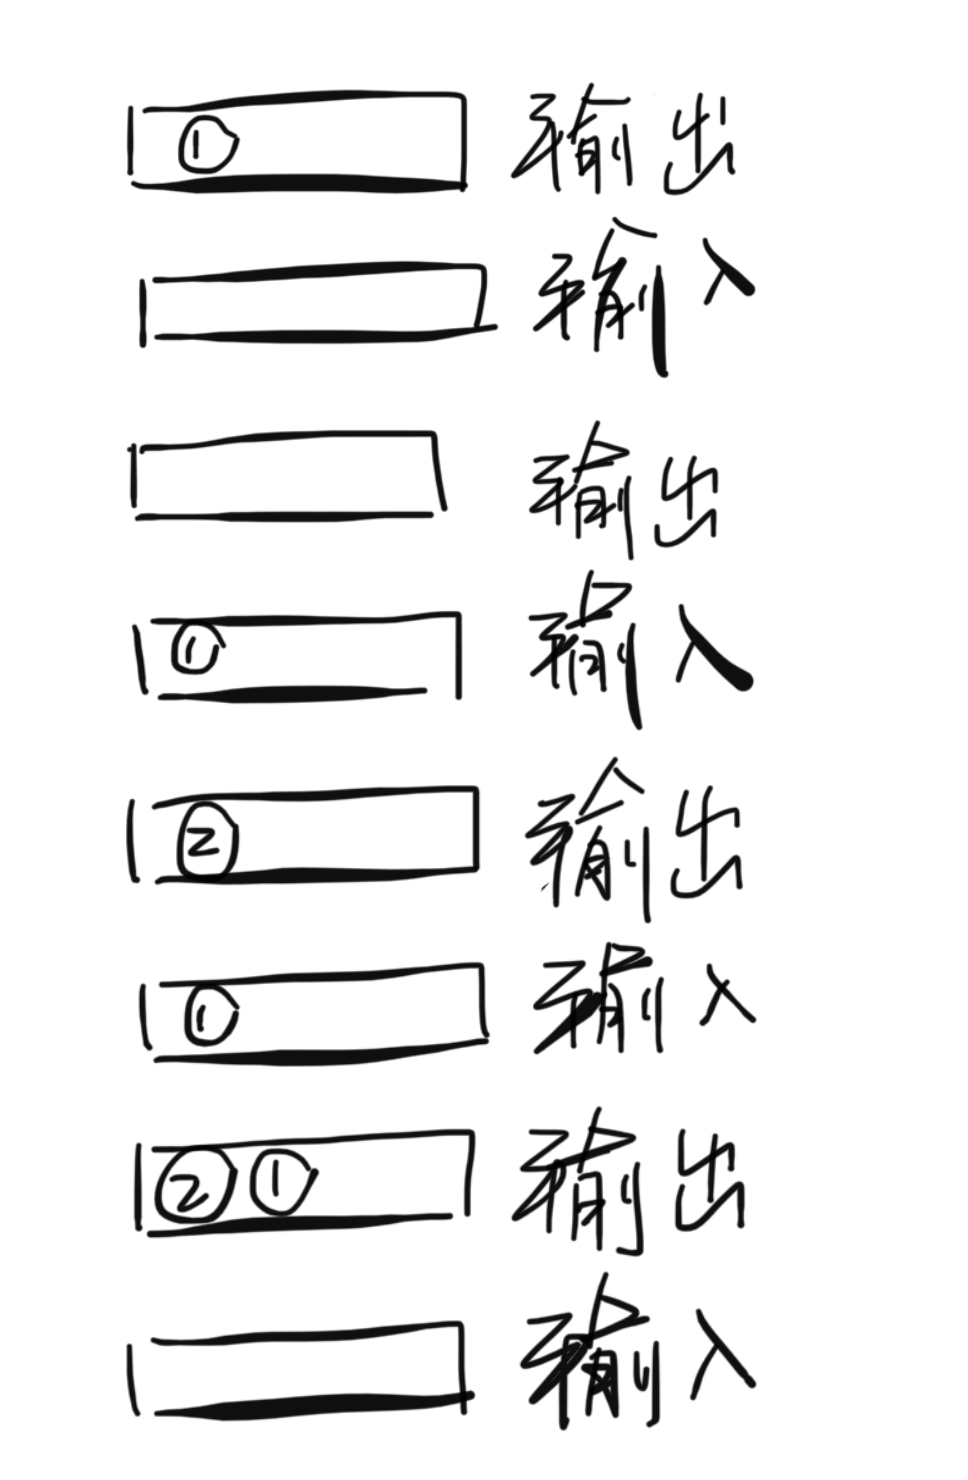 ① 输出
输入
输出
① 输入
② 输出
① 输入
② ① 输出
输入